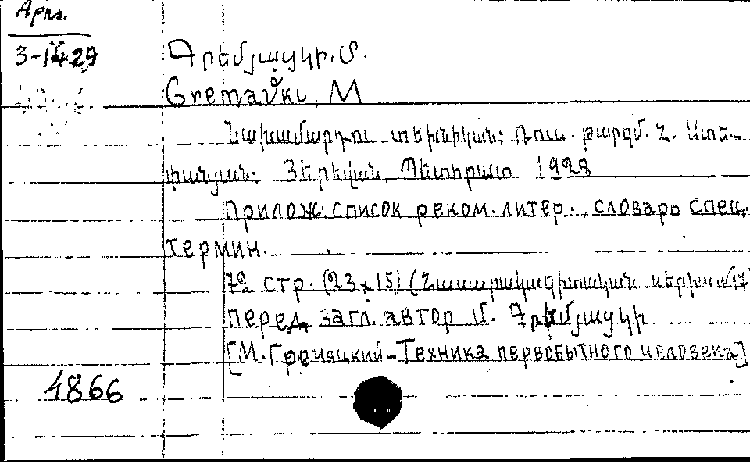 Арм.
3-1429
Գրեմյացկի. Մ.
Gremaẑki, M
Նախամարդու տեխնիկան: Ռուս. թարգմ. Հ. Ստե-
փանյան: Յերեվան, Պետհրատ 1928
Прилож. список реком. литер., словарь спец.
термин.
72 стр. (23x15) (Հասարակագիտական
перед. загл. автор Մ. Գրեմյացկի
[М. Гремяцкий-Техника первобытного человека]
4866